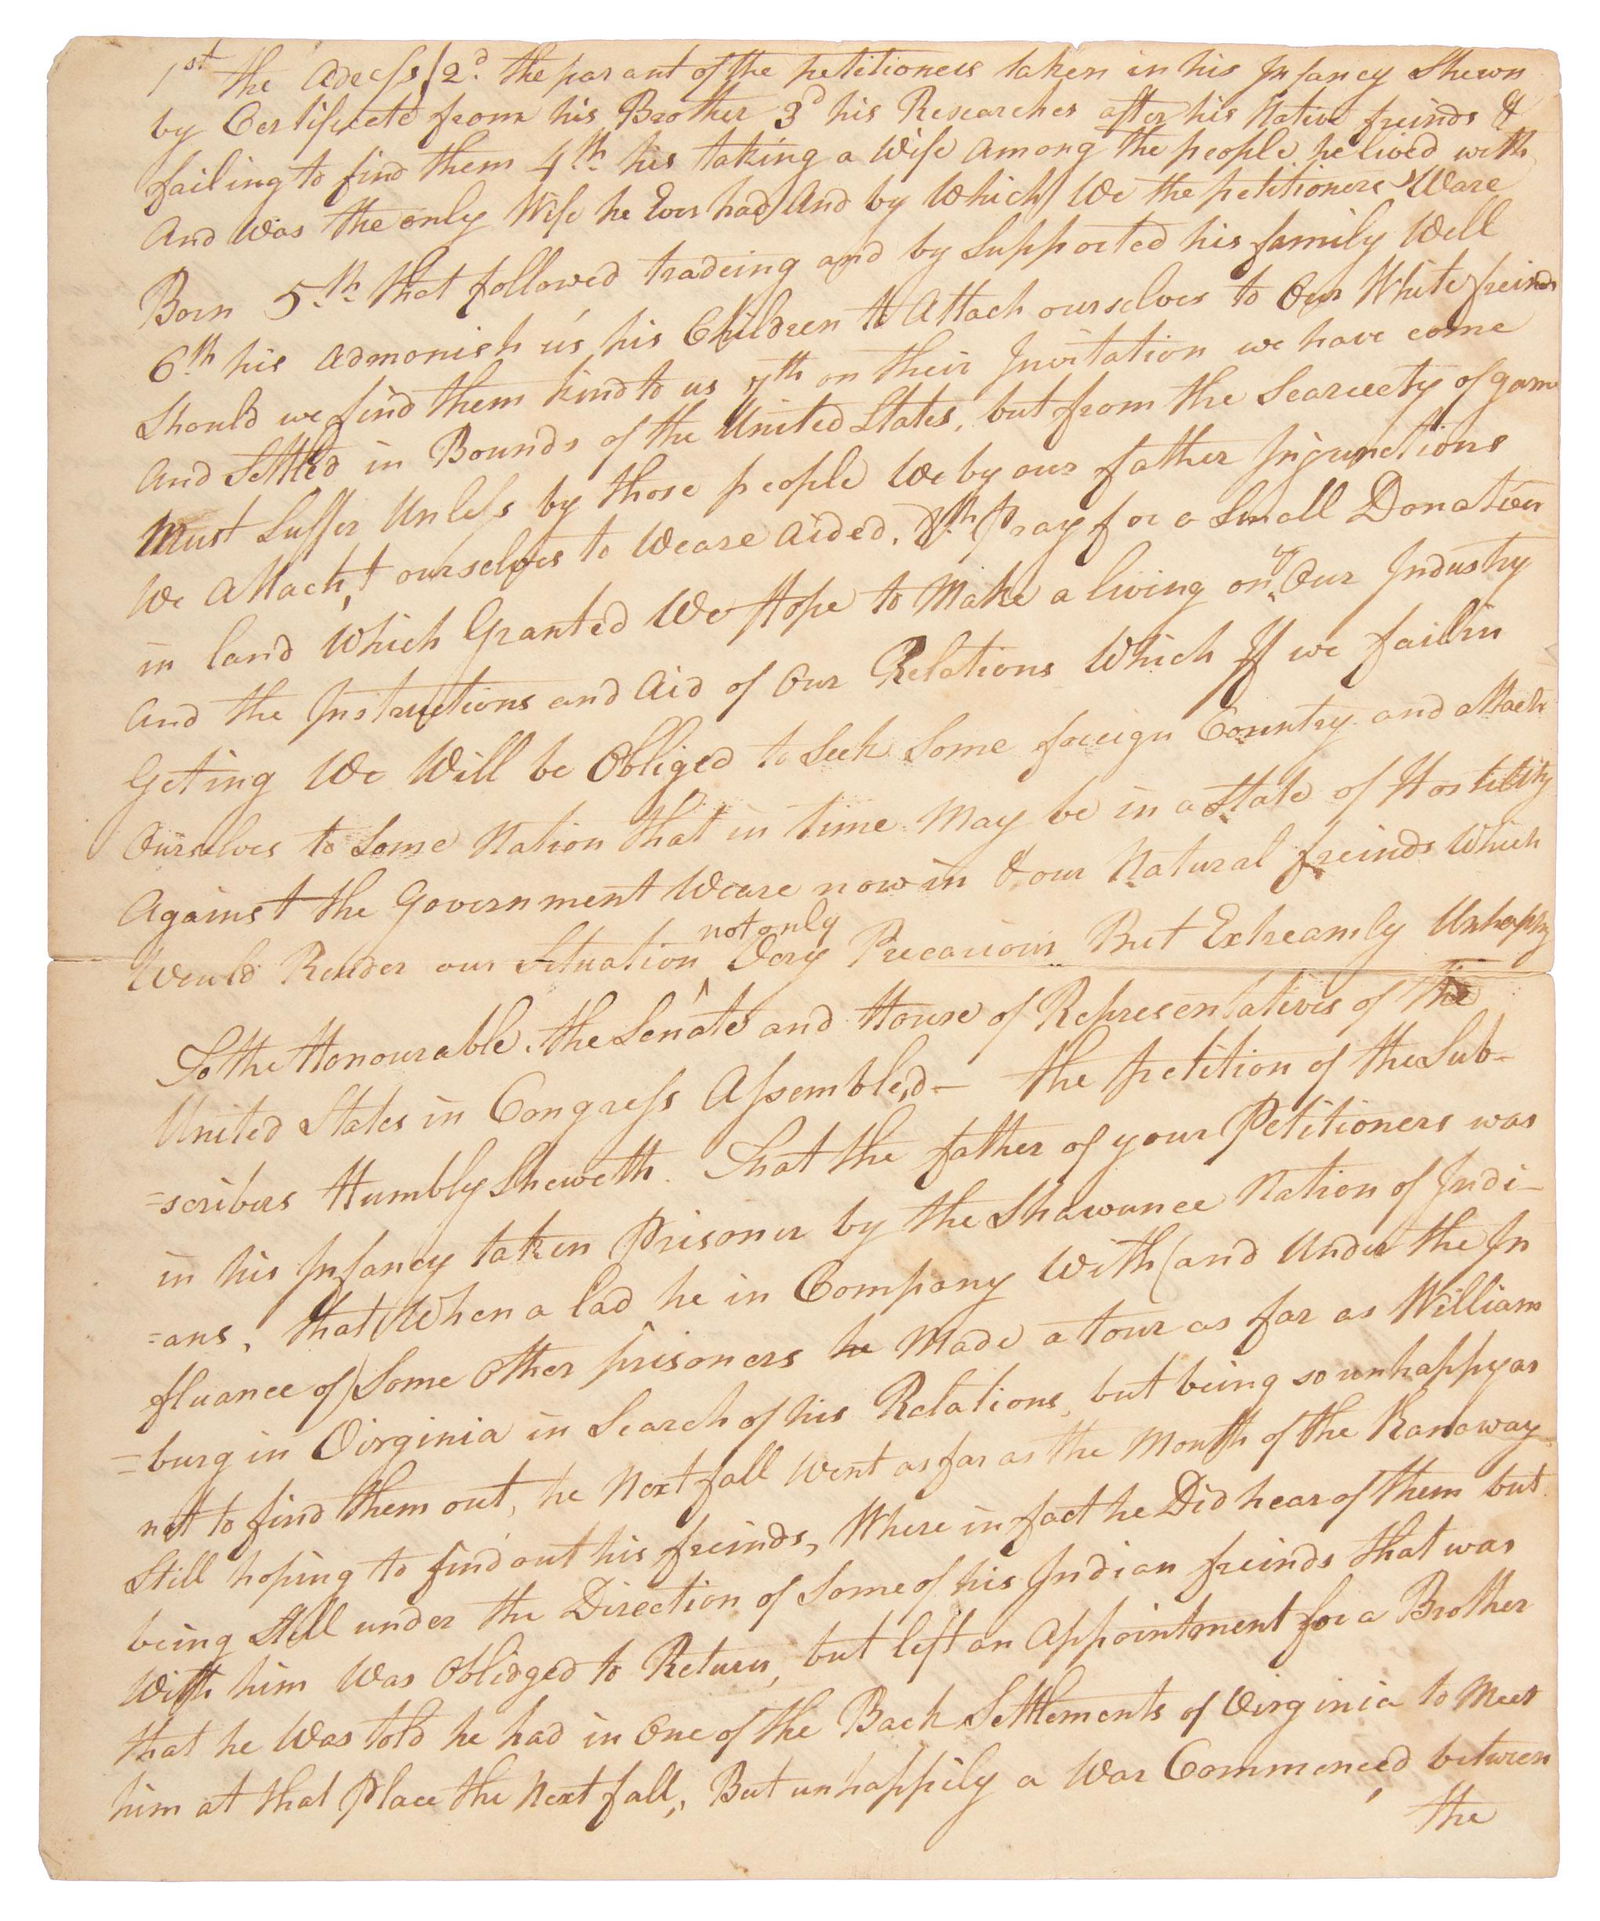 1st the Adress/2d. the parant of the petitioners taken in his Infancy Shewn
by Certificete from his Brother 3d his Researches after his Native freinds &
failing to find them 4th. his taking a Wife Among the people he lived with
And was the only Wife he Ever had/And by Which/We the petitioners Ware
Born 5.th. that followed tradeing and by Supported his family Well
6th his Admonish us his Children to Attach ourselves to Our White freinds
Should we find them kind to us 7th on their Invitation we have come
And Settled in Bounds of the United States, but from the Scarceety of game
Must Suffer Unless by those people We by our father Injunctions
We Attach,t ourselves to We are Aided. 8th. Pray for a Small Donation
in land Which Granted We Hope to Make a living on by Our Industry
And the Instructions and Aid of Our Relations Which If we fail in
Geting We Will be Obliged to Seek Some foreign Country and attach
Ourselves to Some Nation that in time May be in a State of Hostility
Against the Government We are now in & our Natural freinds Which
Would Render our Situation not only Very Precarious But Extreamly Unhappy
To the Honourable the Senate and House of Representatives of the
United States in Congress Assembled - the petition of the Sub-
=scribers Humbly Sheweth. That the father of your Petitioners was
in his Infancy taken Prisoner by the Shawunee Nation of Indi-
=ans, that/When a lad he in Company With (and Under the In
fluance of) Some other prisoners he Made a tour as far as William
=burg in Virginia in Search of his Relations, but being so unhappy as
not to find them out, he Next fall Went as far as the Mouth of the Kanaway
Still hoping to find out his freinds, Where in fact he Did hear of them but
being Still under the Direction of Some of his Indian freinds that was
With him Was Oblidged to Return, but left an Appointment for a Brother
that he Was told he had in One of the Back Settlements of Virginia to Meet
him at that Place the Next fall, But unhappily a War Commenced between
the